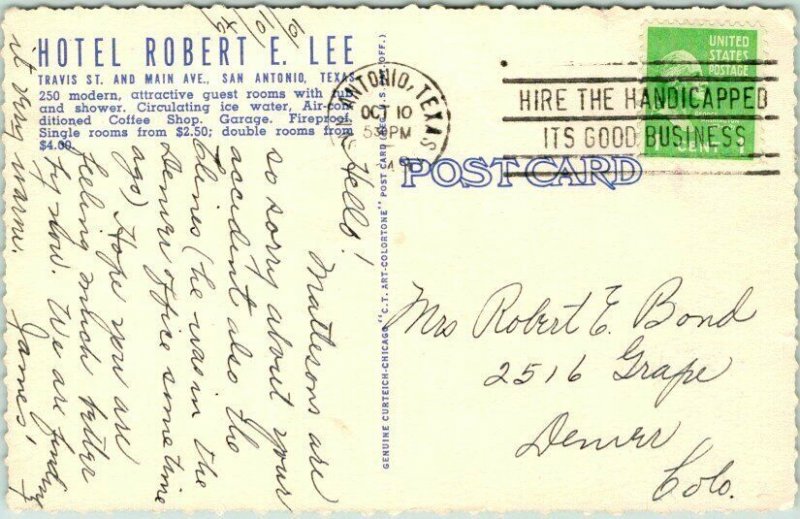 HOTEL ROBERT E. LEE
TRAVIS ST. AND MAIN AVE., SAN ANTONIO, TEXAS
250 modern, attractive guest rooms with tub
and shower. Circulating ice water, Air-con-
ditioned Coffee Shop. Garage. Fireproof.
Single rooms from $2.50; double rooms from
$4.00.
10/10/
Hello!
Mattesons are
so sorry about your
accident also the
(he was in the
Denver office sometime
ago) Hope you are
feeling much better
by now. We are finding
it very warm.
James,
GENUINE CURTEICH-CHICAGO "C.T. ART-COLORTONE" POST CARD (REG. U.S. PAT. OFF.)
SAN ANTONIO, TEXAS
OCT 10
530PM
HIRE THE HANDICAPPED
ITS GOOD BUSINESS
UNITED
STATES
POSTAGE
CENT 1
POST CARD
Mrs Robert E. Bond
2516 Grape
Denver
Colo.